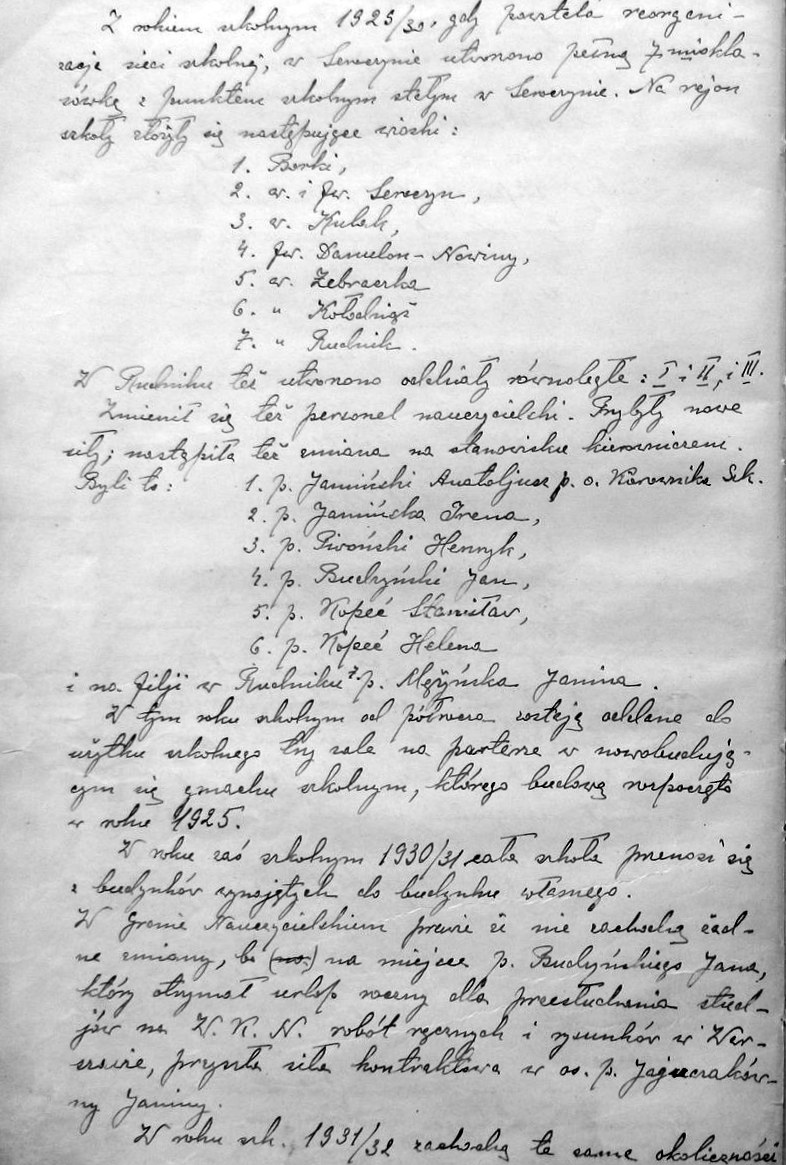 Z rokiem szkolnym 1929/30. gdy powstała reorgani-
zacja sieci szkolnej, w Sewerynie utworzono pełną 7miokla-
sówkę z punktem szkolnym stałym w Sewerynie. Na rejon
szkoły złożyły się następujące wioski:
1. Borki,
2. w. i fw. Seweryn,
3. w. Kułak,
4. fw. Danielon-Nowiny,
5. w. Żebraczka
6. " Kołodziąż
7. " Rudnik.
W Rudniku też utworzono oddziały równoległe: I i II, i III.
Zmienił się też personel nauczycielski. Przybyły nowe
siły; nastąpiła też zmiana na stanowisku kierowniczem.
Byli to: 1. p. Jamiński Anatoljusz p. o. Kierownika Szk.
2. p. Jamińska Irena,
3. p. Piwoński Henryk,
4. p. Budzyński Jan,
5. p. Kopeć Stanisław,
6. p. Kopeć Helena
i na filji w Rudniku 7. p. Janina.
W tym roku szkolnym od półrocza zostają oddane do
użytku szkolnego trzy sale na parterze w nowobudują-
cym się gmachu szkolnym, którego budowę rozpoczęto
w roku 1925.
W roku zaś szkolnym 1930/31 cała szkoła przenosi się
z budynków wynajętych do budynku własnego.
W Gronie Nauczycielskiem prawie że nie zachodzą żad-
ne zmiany, bo (na) na miejsce p. Budzyńskiego Jana,
który otrzymał urlop roczny dla przesłuchania stud-
jów na W. K. N. robót ręcznych i rysunków w War-
szawie, przyszła siła kontraktowa w os. p. Jajuczaków-
ny Janiny.
W roku szk. 1931/32 zachodzą te same okoliczności